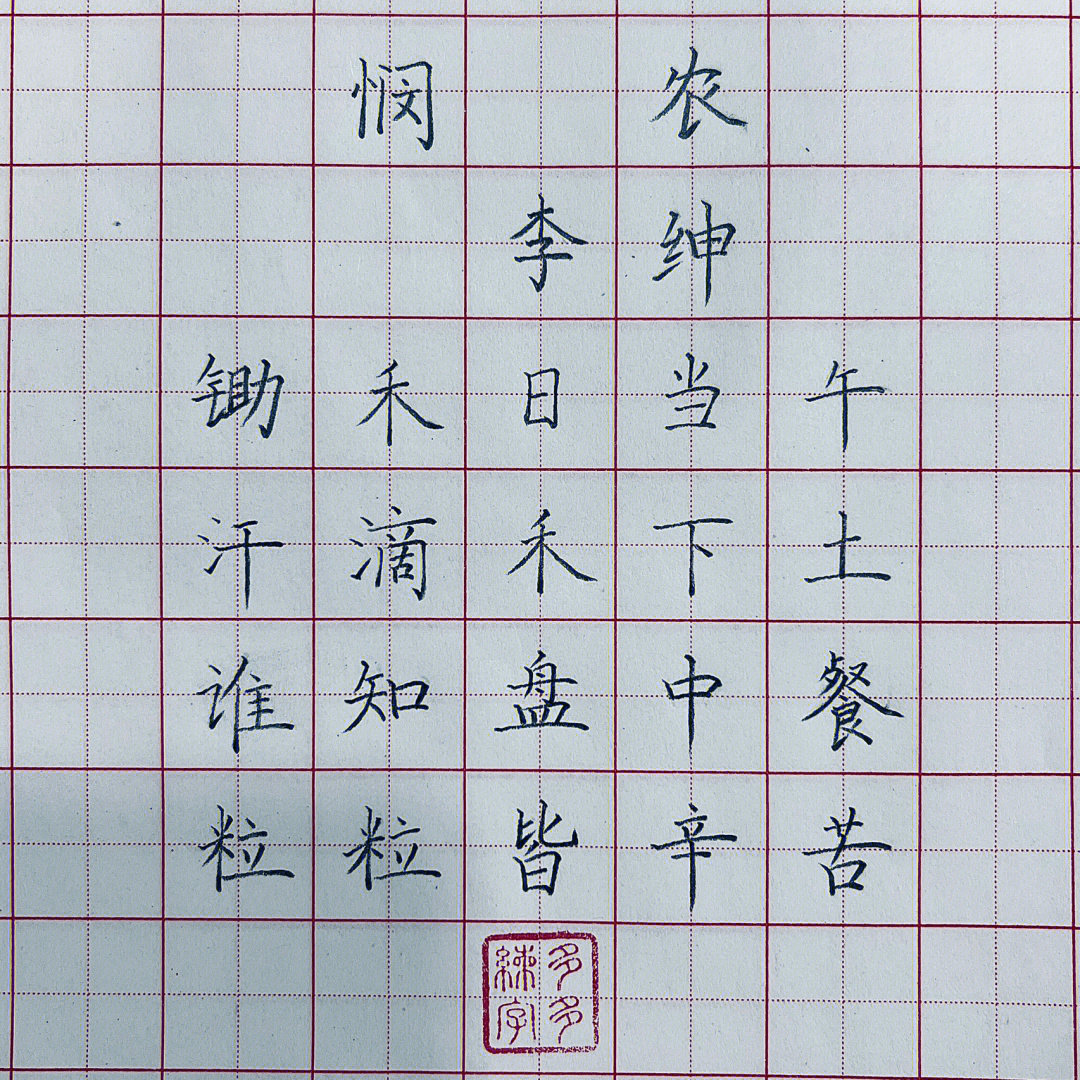 悯农
李绅
锄禾日当午
汗滴禾下土
谁知盘中餐
粒粒皆辛苦
多多練字